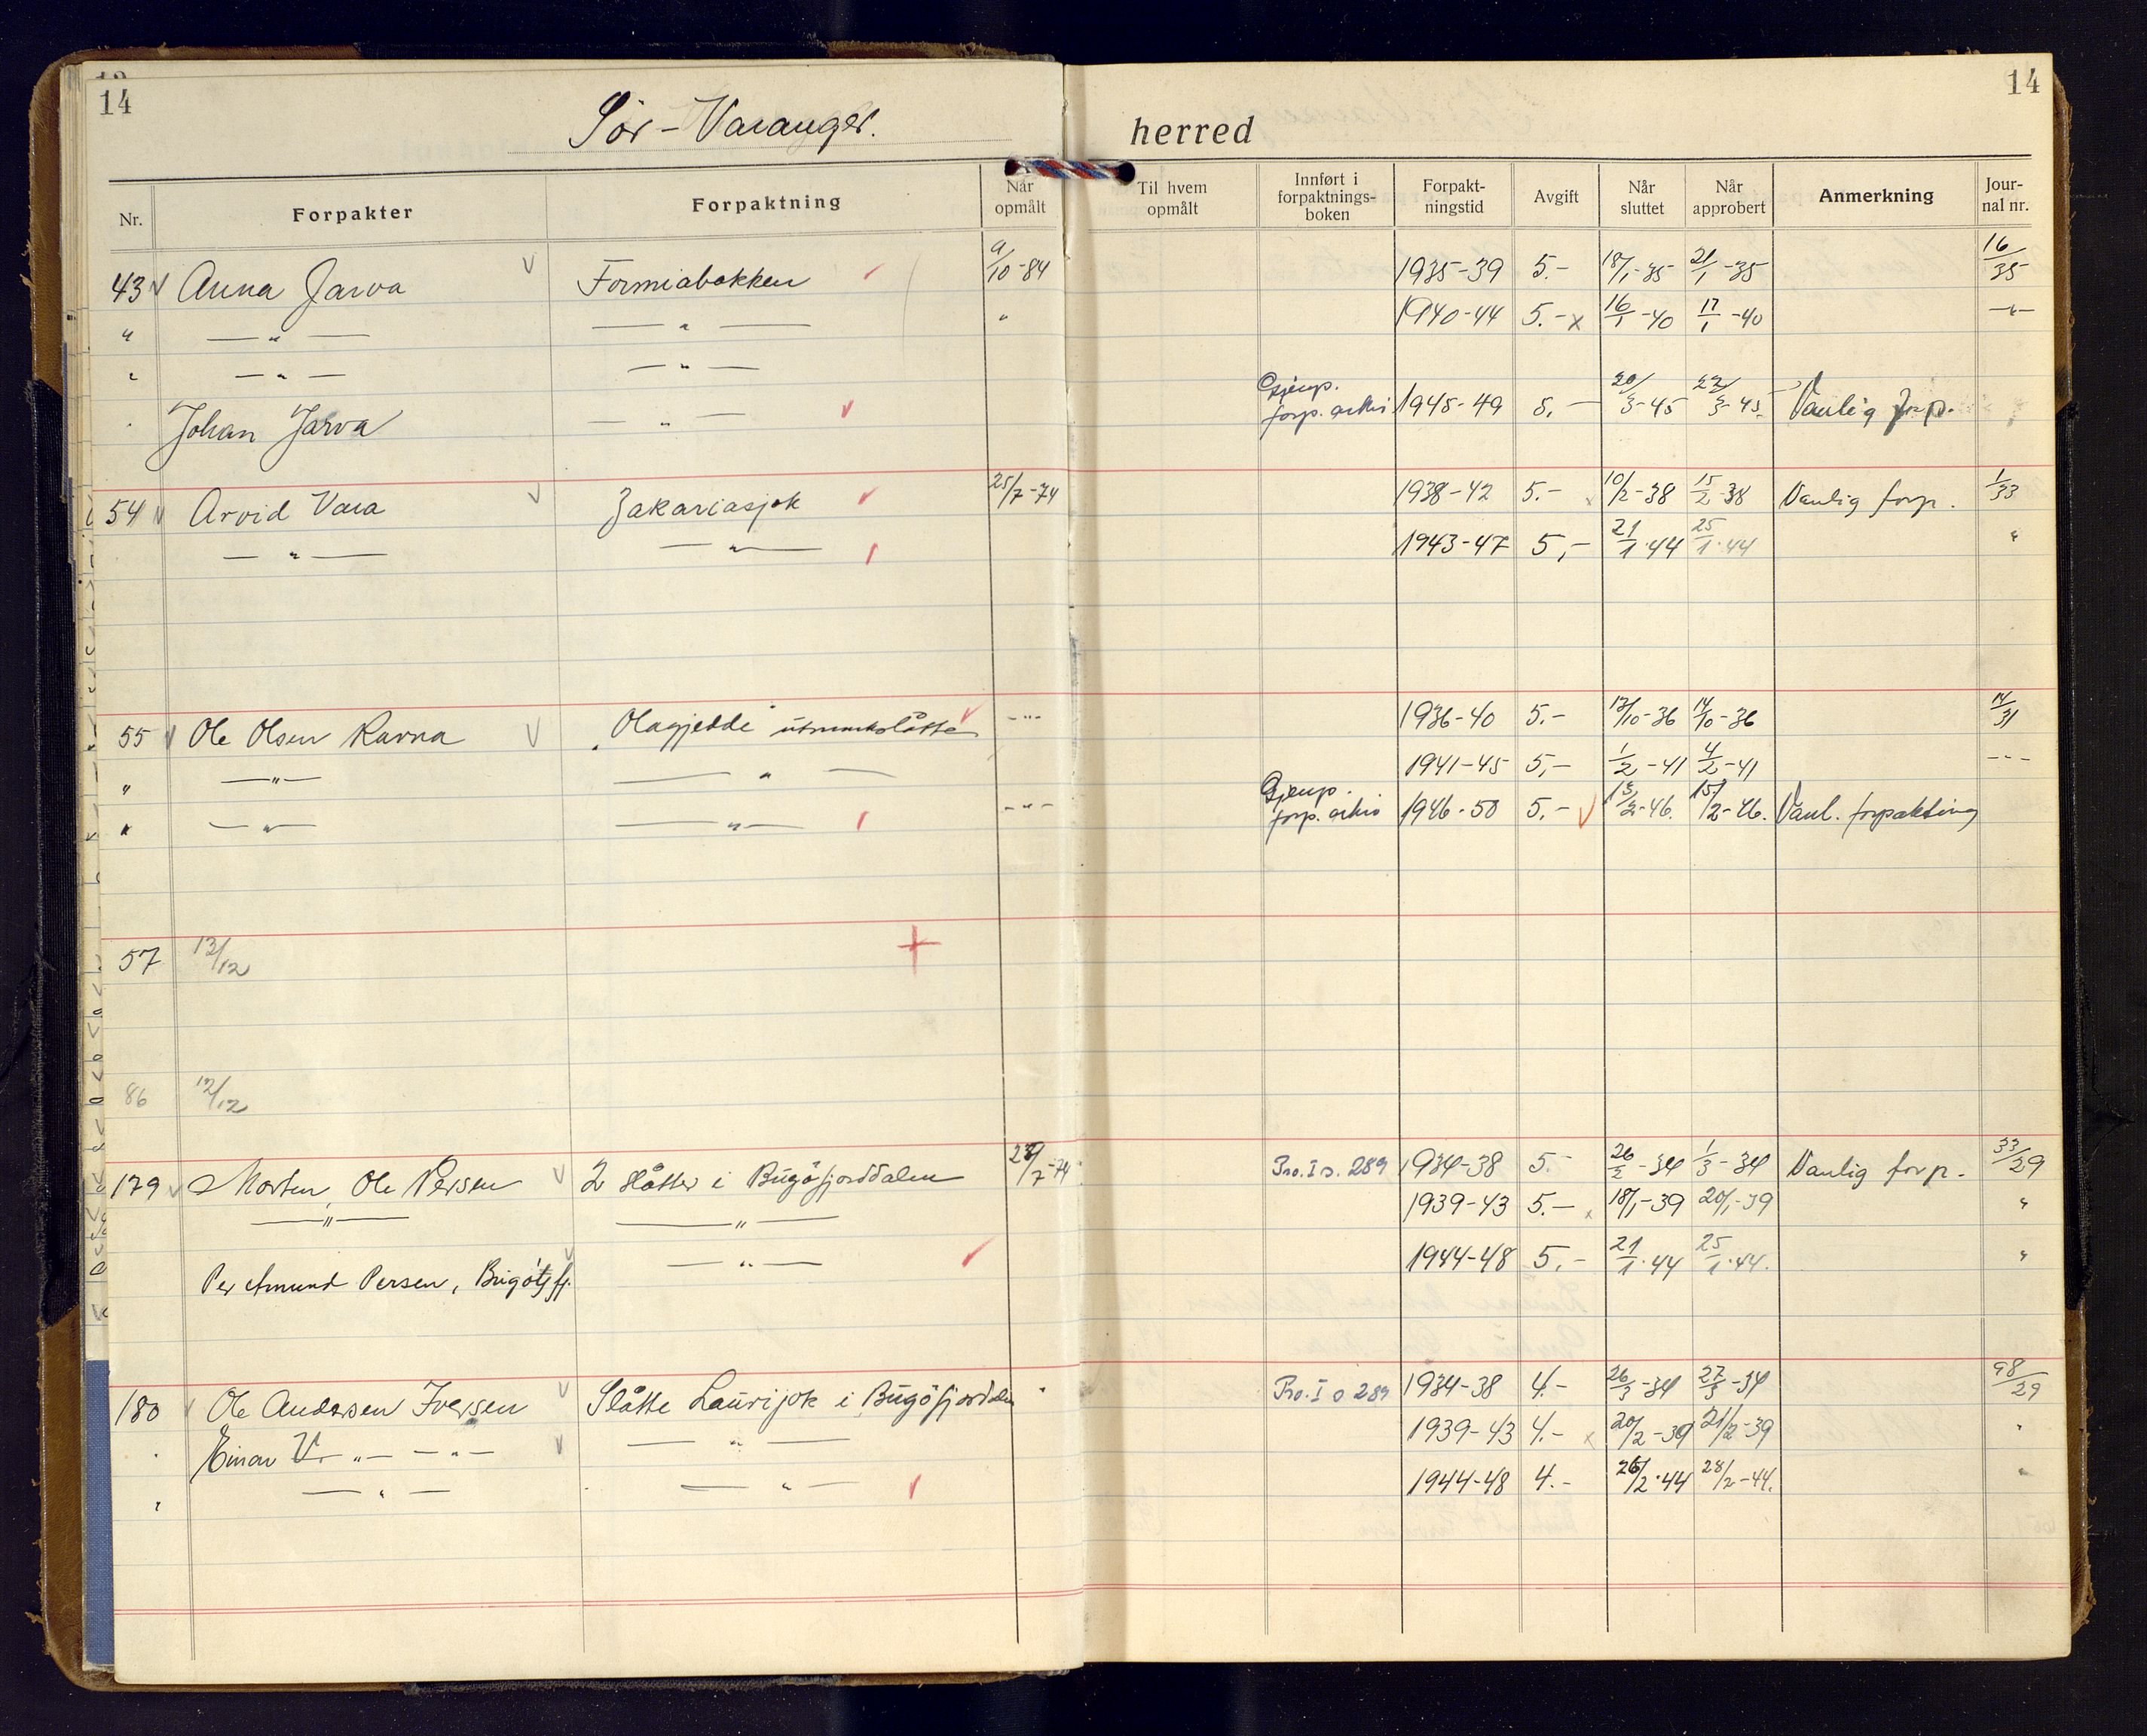 14
14
Sør-Varanger. herred
Nr. Forpakter Forpaktning Når opmålt Til hvem opmålt Innført i forpaktnings-boken Forpakt-ningstid Avgift Når sluttet Når approbert Anmerkning Jour-nal nr.
43 Anna Jarva Formiabakken 9/10-84 1935-39 5.- 18/1-35 21/1-35 16/35
" —"— —"— " 1940-44 5.- x 16/1-40 17/1-40 —"—
" —"— —"—
Johan Jarva —"— Gjenp. forp. arkiv 1945-49 5.— 20/3-45 22/3-45. Vanlig forp.
54 Arvid Vara Zakariasjok 25/7-74 1938-42 5.- 10/2-38 15/2-38 Vanlig forp. 1/33
—"— —"— 1943-47 5,- 21/1.44 25/1.44 "
55 Ole Olsen Ravna "Olagjedde" utmarkslåtte -"- 1936-40 5.- 12/10-36 14/10-36 14/31
" —"— —"— 1941-45 5,- 1/2-41 4/2-41 -"-
" —"— —"— -"- Gjenp. forp. arkiv 1946-50 5.- 13/2-46. 15/2-46. Vanl. forpakting
57 12/12
86 12/12
179 Morten Ole Persen 2 slåtter i Bugöfjorddalen 27/7-74 Pro. I s. 289 1934-38 5.- 26/2-34 1/3-34 Vanlig forp. 33/29
—"— —"— 1939-43 5.— x 18/1-39 20/1-39 "
Per Amund Persen, Bugöfj. —"— 1944-48 5.- 21/1.44 25/1.44. "
180 Ole Andersen Iversen Slåtte Laurijok i Bugöfjorddalen " Pro. I s 289 1934-38 4.- 26/3-34 27/3-34 98/29
" Einar V. —"— —"— —"— 1939-43 4.- x 20/2-39 21/2-39 "
" —"— —"— 1944-48 4.- 26/2.44 28/2-44. "